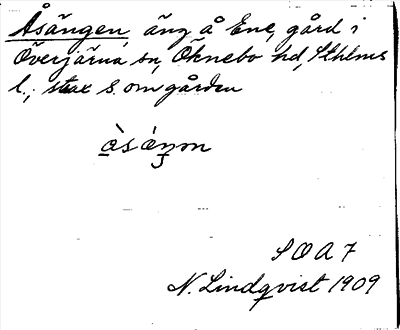 Åsängen, äng å Ene, gård i
Överjärna sn, Öknebo hd, Sthlms
l., strax S. om gården
SOA 7
N. Lindqvist 1909